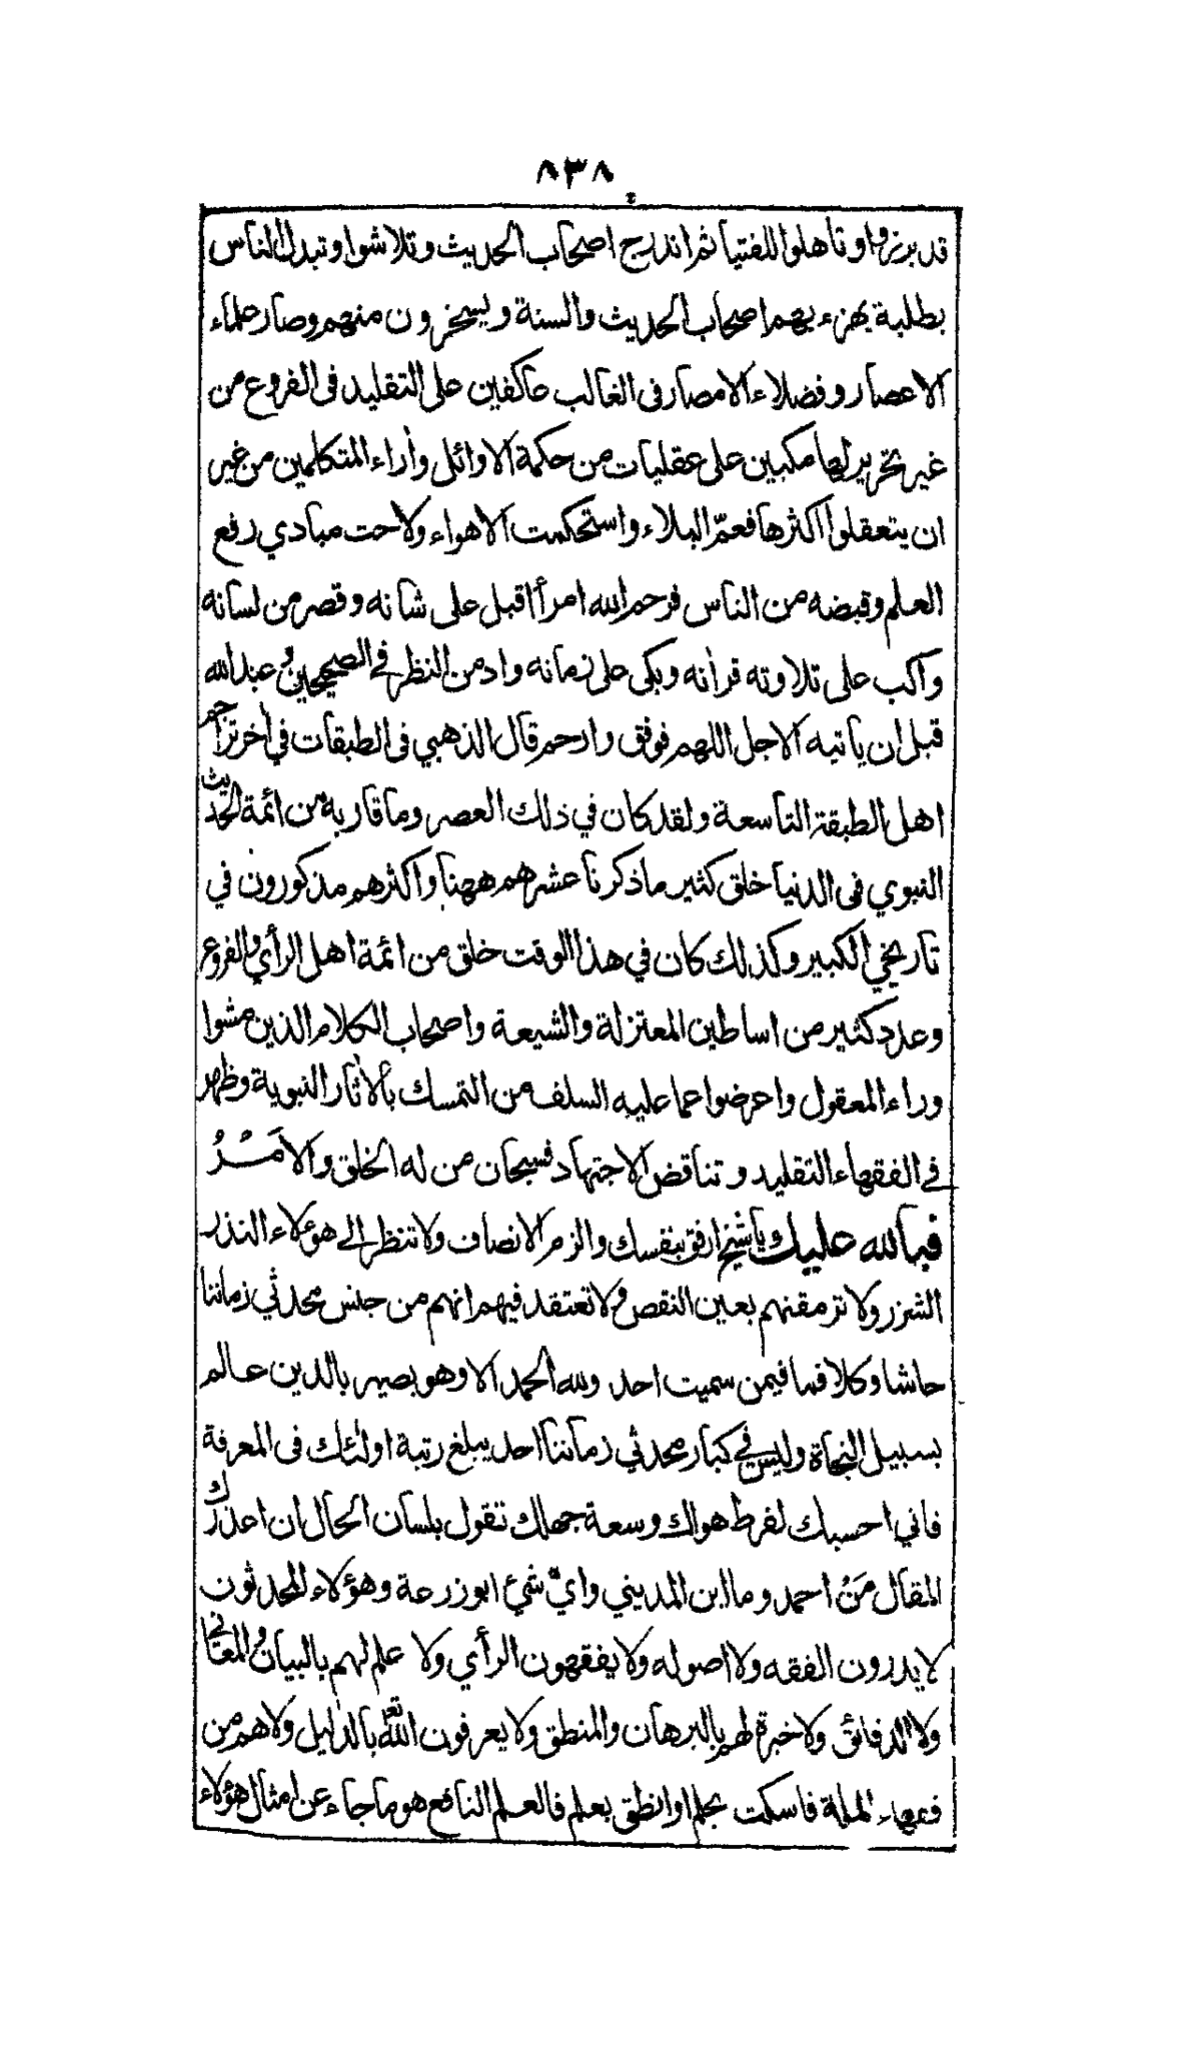 ٨٣٨
قد برزوا وتأهلوا للفتيا ثم اندرج اصحاب الحديث وتلاشوا وتبدل الناس
بطلبة يهزء بهم اصحاب الحديث والسنة ويسخرون منهم وصار علماء
الاعصار وفضلاء الامصار فى الغالب عاكفين على التقليد فى الفروع من
غير تحرير لها مكبين على عقليات من حكمة الاوائل وأراء المتكلمين من غير
ان يتعقلوا اكثرها فعمّ البلاء واستحكمت الاهواء ولاحت مبادي رفع
العلم وقبضه من الناس فرحم الله امرأ اقبل على شانه وقصر من لسانه
واكب على تلاوته قرأنه وبكى على زمانه وادمن النظر في الصحيحين وعبد الله
قبل ان ياتيه الاجل اللهم فوفق وارحم قال الذهبي فى الطبقات في أخر تراجم
اهل الطبقة التاسعة ولقد كان في ذلك العصر وما قاربه من ائمة الحديث
النبوي فى الدنيا خلق كثير ما ذكرنا عشرهم ههنا واكثرهم مذكورون في
تاريخي الكبير وكذلك كان في هذا الوقت خلق من ائمة اهل الرأي والفروع
وعدد كثير من اساطين المعتزلة والشيعة واصحاب الكلام الذين مشوا
وراء المعقول واعرضوا عما عليه السلف من التمسك بالأثار النبوية وظهر
في الفقهاء التقليد وتناقض الاجتهاد فسبحان من له الخلق والامَرُ
فبالله عليك يا شيخ ارفق بنفسك والزم الانصاف ولا تنظر الى هؤلاء النذر
الشزر ولا ترمقنهم بعين النقص ولا تعتقد فيهم انهم من جنس محدثي زماننا
حاشا وكلا فما فيمن سميت احد ولله الحمد الا وهو بصير بالدين عالم
بسبيل النجاة وليس في كبار محدثي زماننا احد يبلغ رتبة اولئك فى المعرفة
فاني احسبك لفرط هواك وسعة جهلك تقول بلسان الحال ان اعذرك
المقال مَنْ احمد وما ابن المديني وايّ شئ ابو زرعة وهؤلاء المحدثون
لا يدرون الفقه ولا اصوله ولا يفقهون الرأي ولا علم لهم بالبيان والمعاني
ولا الدقائق ولا خبرة لهم بالبرهان والمنطق ولا يعرفون الله تع بالدليل ولا هم من
فقهاء الملة فاسكت بحلم او انطق بعلم فالعلم النافع هو ما جاء عن امثال هؤلاء